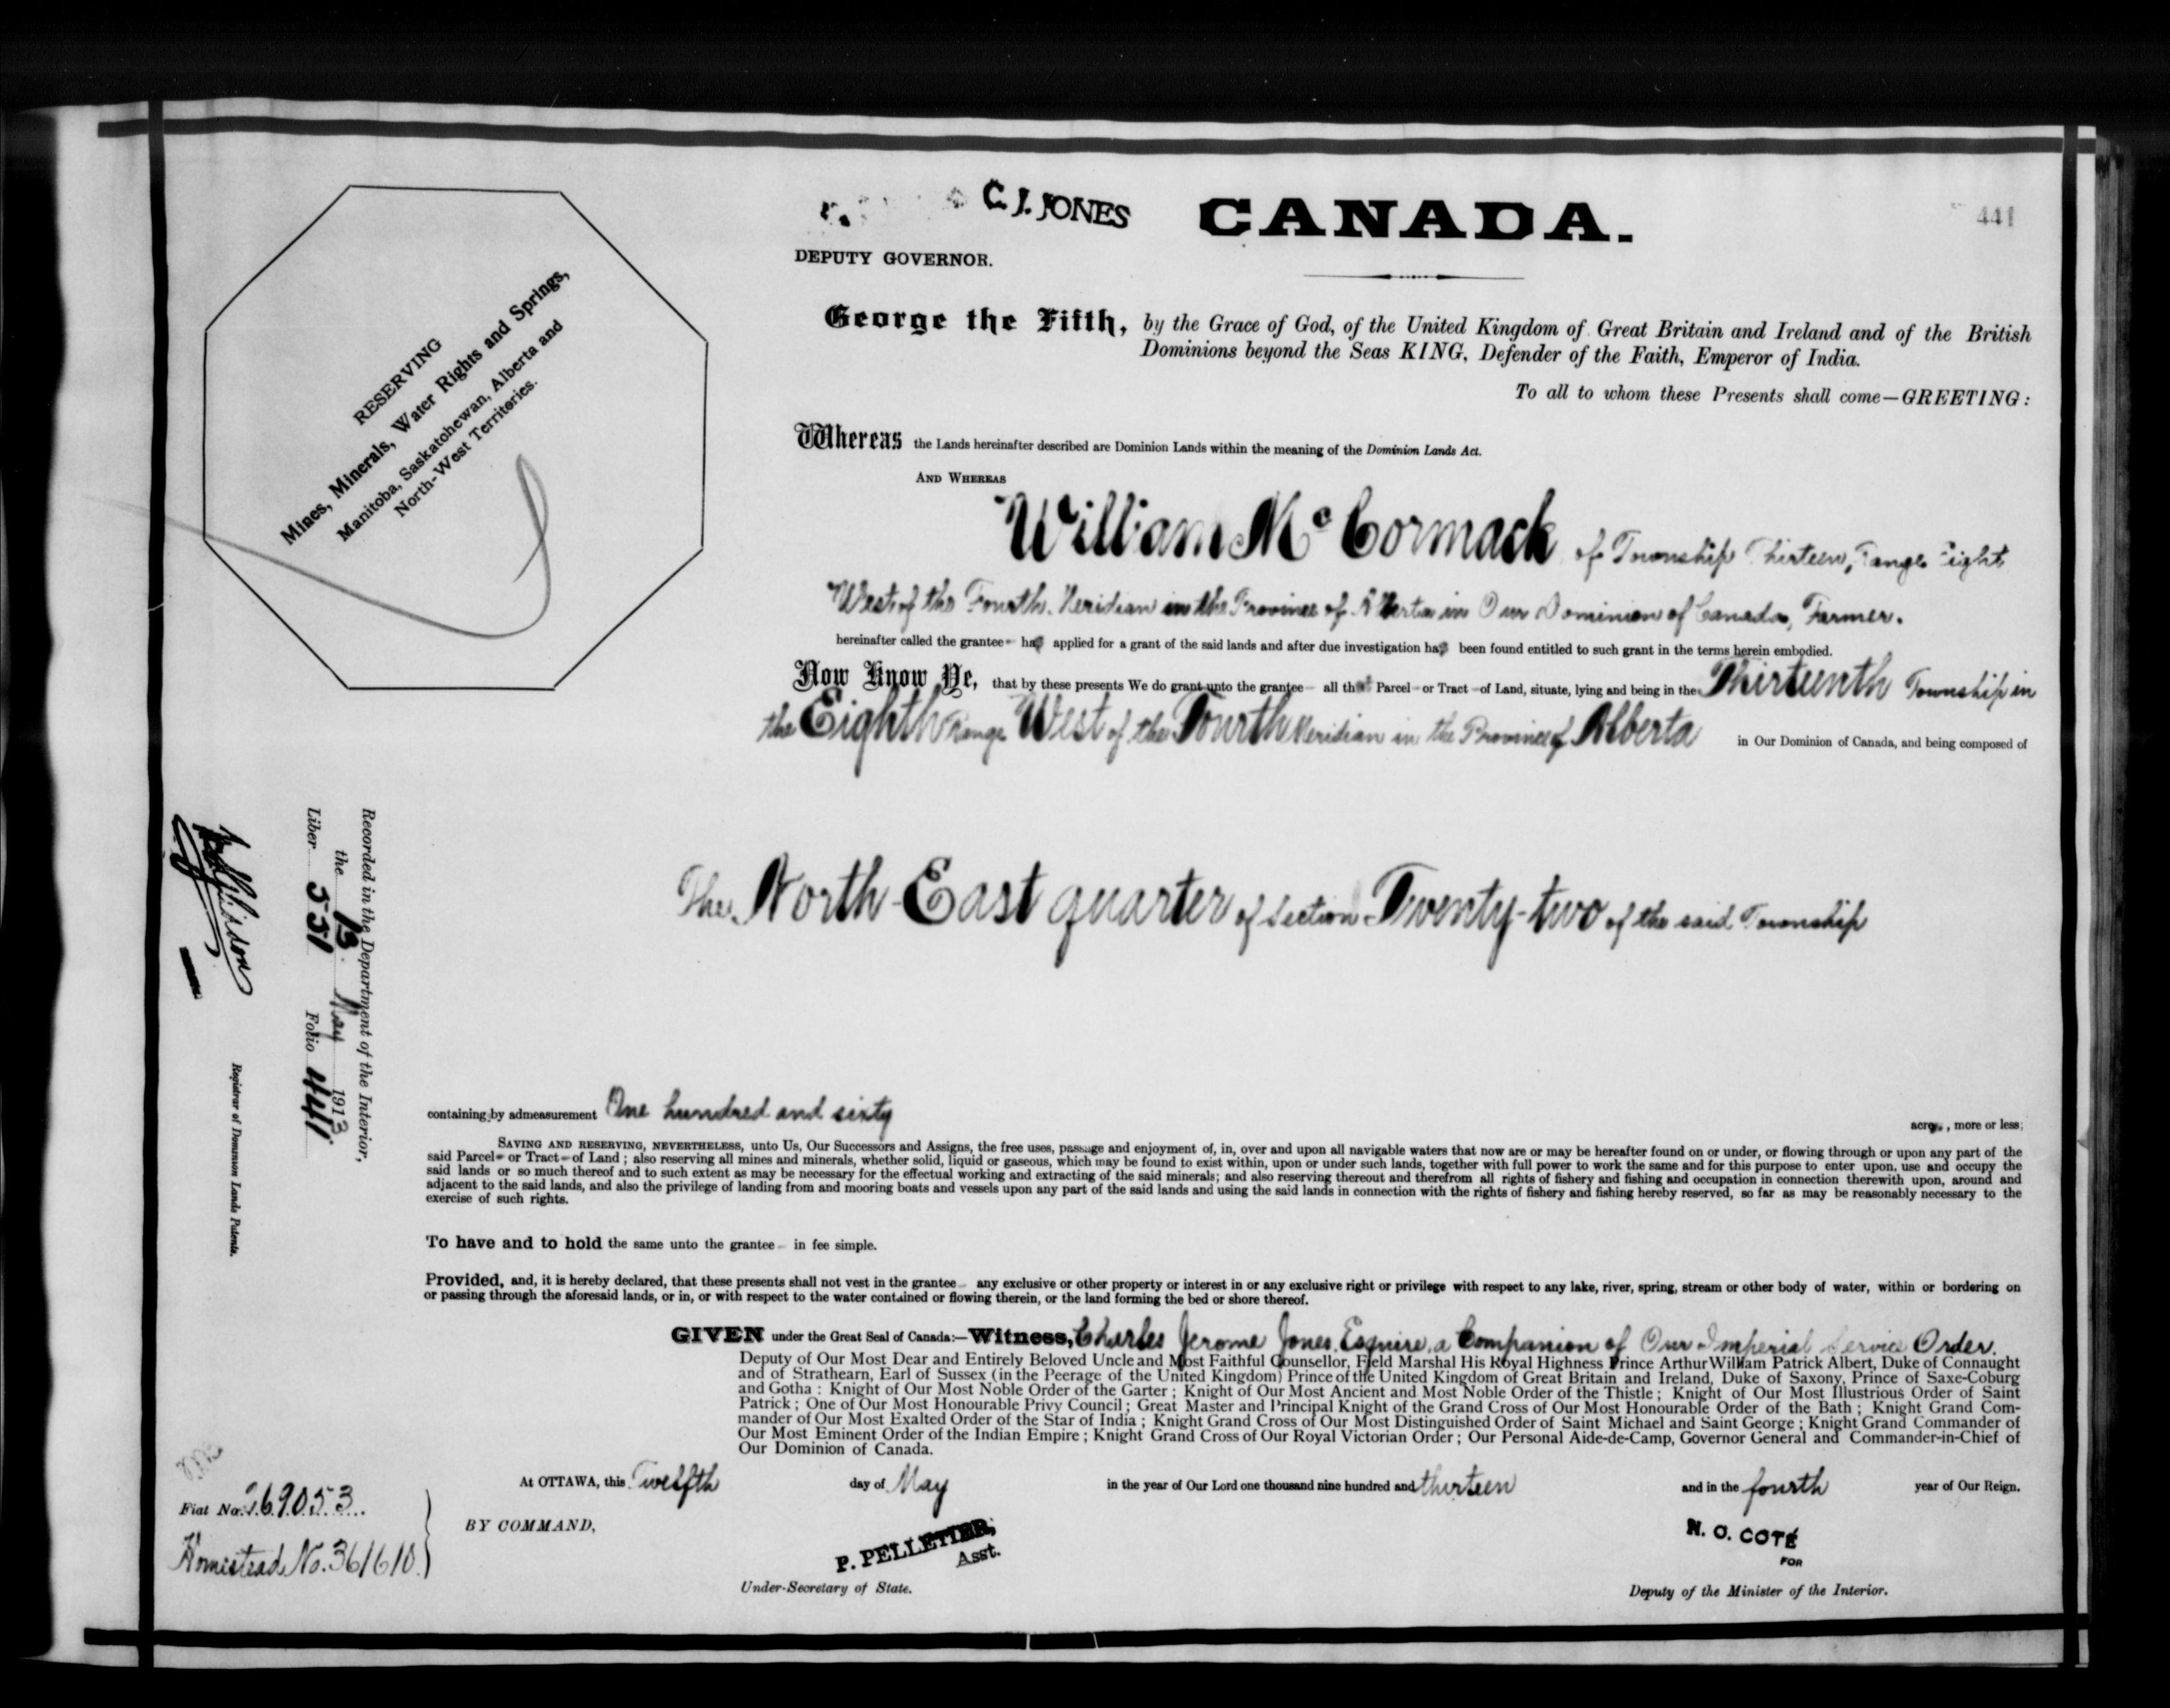 C. J. JONES
CANADA.
441
DEPUTY GOVERNOR.
George the Fifth, by the Grace of God, of the United Kingdom of Great Britain and Ireland and of the British
Dominions beyond the Seas KING, Defender of the Faith, Emperor of India.
To all to whom these Presents shall come—GREETING:
RESERVING
Mines, Minerals, Water Rights and Springs,
Manitoba, Saskatchewan, Alberta and
North-West Territories.
Whereas the Lands hereinafter described are Dominion Lands within the meaning of the Dominion Lands Act.
AND WHEREAS
William McCormack of Township Thirteen, Range Eight
West of the Fourth Meridian in the Province of Alberta in Our Dominion of Canada, Farmer.
hereinafter called the grantee has applied for a grant of the said lands and after due investigation has been found entitled to such grant in the terms herein embodied.
Now Know Ye, that by these presents We do grant unto the grantee all that Parcel or Tract of Land, situate, lying and being in the Thirteenth Township in
the Eighth Range West of the Fourth Meridian in the Province of Alberta in Our Dominion of Canada, and being composed of
The North-East quarter of Section Twenty-two of the said Township
Recorded in the Department of the Interior,
the 13 May 1913
Liber 551 Folio 441
Registrar of Dominion Lands Patents.
containing by admeasurement One hundred and sixty acres, more or less;
SAVING AND RESERVING, NEVERTHELESS, unto Us, Our Successors and Assigns, the free uses, passage and enjoyment of, in, over and upon all navigable waters that now are or may be hereafter found on or under, or flowing through or upon any part of the
said Parcel or Tract of Land; also reserving all mines and minerals, whether solid, liquid or gaseous, which may be found to exist within, upon or under such lands, together with full power to work the same and for this purpose to enter upon, use and occupy the
said lands or so much thereof and to such extent as may be necessary for the effectual working and extracting of the said minerals; and also reserving thereout and therefrom all rights of fishery and fishing and occupation in connection therewith upon, around and
adjacent to the said lands, and also the privilege of landing from and mooring boats and vessels upon any part of the said lands and using the said lands in connection with the rights of fishery and fishing hereby reserved, so far as may be reasonably necessary to the
exercise of such rights.
To have and to hold the same unto the grantee in fee simple.
Provided, and, it is hereby declared, that these presents shall not vest in the grantee any exclusive or other property or interest in or any exclusive right or privilege with respect to any lake, river, spring, stream or other body of water, within or bordering on
or passing through the aforesaid lands, or in, or with respect to the water contained or flowing therein, or the land forming the bed or shore thereof.
GIVEN under the Great Seal of Canada:—Witness, Charles Jerome Jones, Esquire, a Companion of Our Imperial Service Order,
Deputy of Our Most Dear and Entirely Beloved Uncle and Most Faithful Counsellor, Field Marshal His Royal Highness Prince Arthur William Patrick Albert, Duke of Connaught
and of Strathearn, Earl of Sussex (in the Peerage of the United Kingdom) Prince of the United Kingdom of Great Britain and Ireland, Duke of Saxony, Prince of Saxe-Coburg
and Gotha: Knight of Our Most Noble Order of the Garter; Knight of Our Most Ancient and Most Noble Order of the Thistle; Knight of Our Most Illustrious Order of Saint
Patrick; One of Our Most Honourable Privy Council; Great Master and Principal Knight of the Grand Cross of Our Most Honourable Order of the Bath; Knight Grand Com-
mander of Our Most Exalted Order of the Star of India; Knight Grand Cross of Our Most Distinguished Order of Saint Michael and Saint George; Knight Grand Commander of
Our Most Eminent Order of the Indian Empire; Knight Grand Cross of Our Royal Victorian Order; Our Personal Aide-de-Camp, Governor General and Commander-in-Chief of
Our Dominion of Canada.
At OTTAWA, this Twelfth day of May in the year of Our Lord one thousand nine hundred and thirteen and in the fourth year of Our Reign.
Fiat No. 269053.
Homestead No. 361610.
BY COMMAND,
P. PELLETIER,
Asst.
Under-Secretary of State.
N. O. COTÉ
FOR
Deputy of the Minister of the Interior.